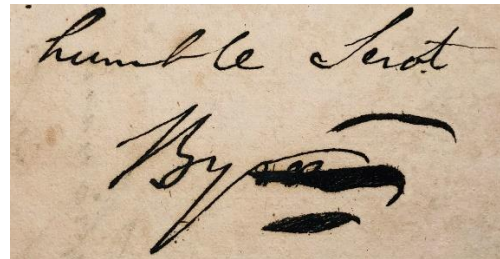 humble Servt
Byron